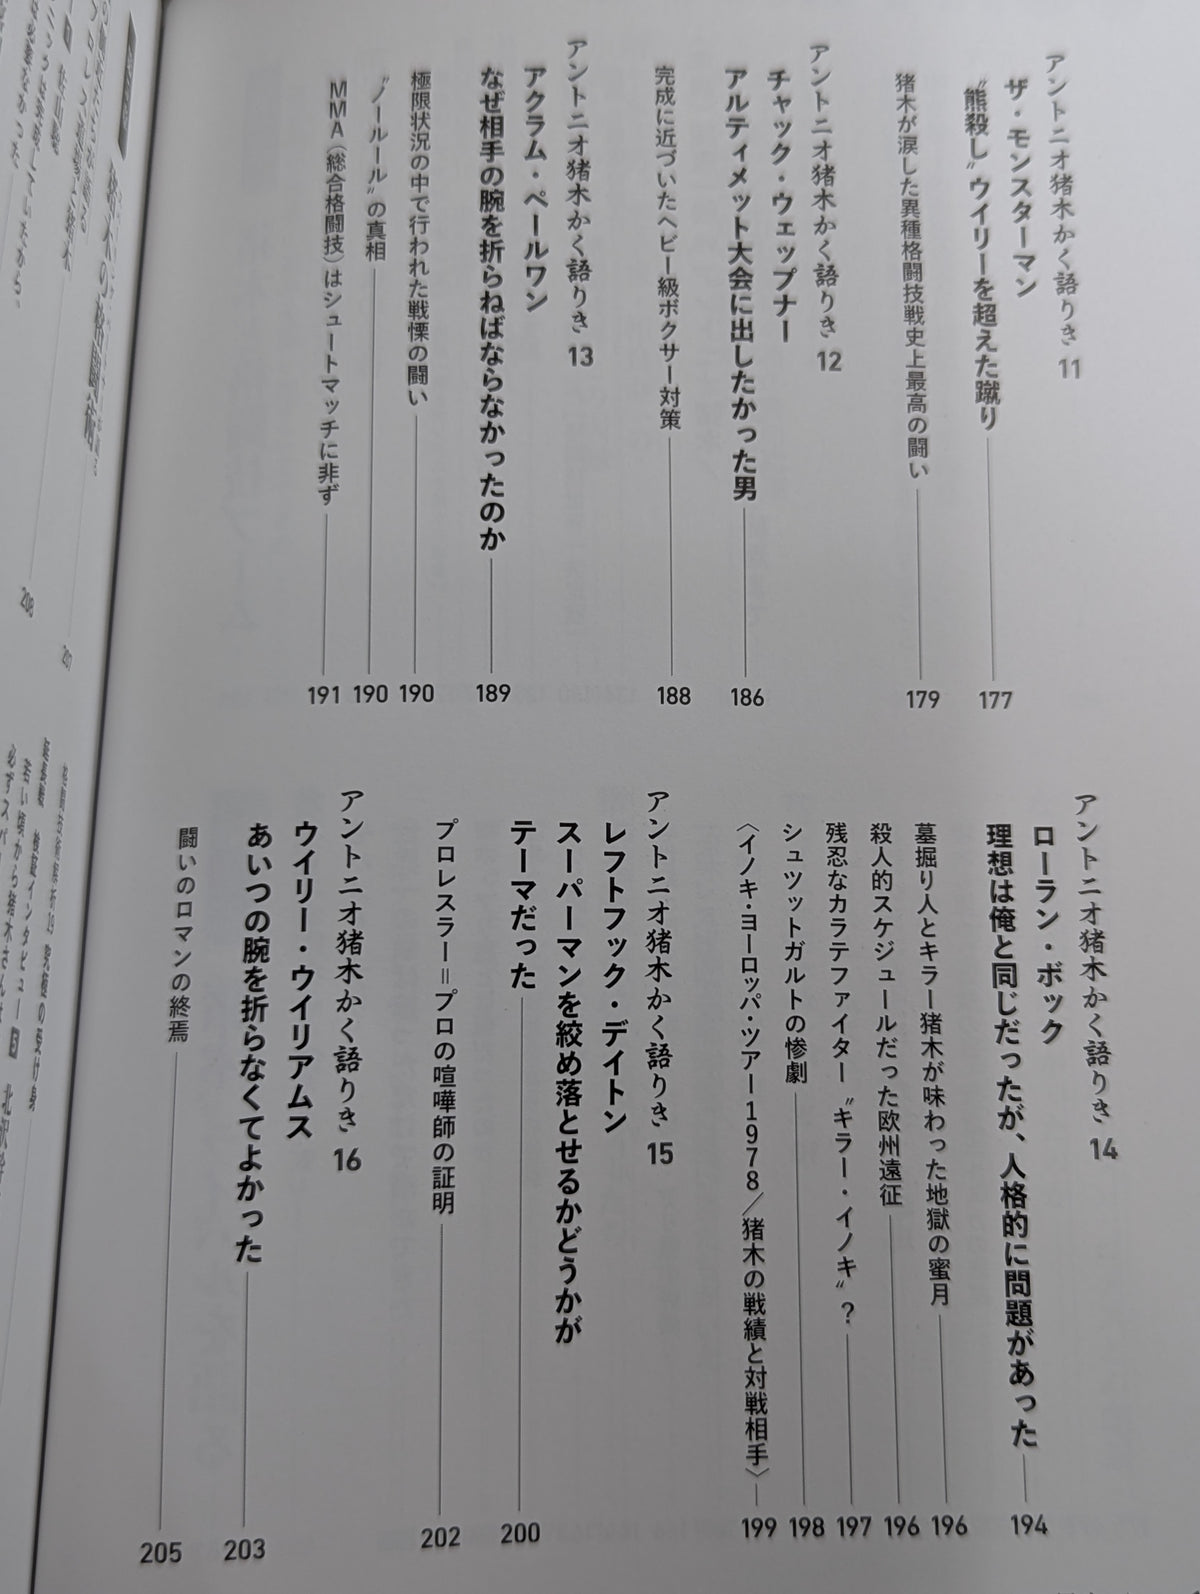 アントニオ猪木かく語りき 11
ザ・モンスターマン
〝熊殺し〟ウイリーを超えた蹴り 177
猪木が涙した異種格闘技戦史上最高の闘い 179
アントニオ猪木かく語りき 12
チャック・ウェップナー
アルティメット大会に出したかった男 186
完成に近づいたヘビー級ボクサー対策 188
アントニオ猪木かく語りき 13
アクラム・ペールワン
なぜ相手の腕を折らねばならなかったのか 189
極限状況の中で行われた戦慄の闘い 190
〝ノールール〟の真相 190
MMA（総合格闘技）はシュートマッチに非ず 191
アントニオ猪木かく語りき 14
ローラン・ボック
理想は俺と同じだったが、人格的に問題があった 194
墓掘り人とキラー猪木が味わった地獄の蜜月 196
殺人的スケジュールだった欧州遠征 196
残忍なカラテファイター〝キラー・イノキ〟？ 197
シュツットガルトの惨劇 198
〈イノキ・ヨーロッパ・ツアー1978／猪木の戦績と対戦相手〉 199
アントニオ猪木かく語りき 15
レフトフック・デイトン
スーパーマンを絞め落とせるかどうかが
テーマだった 200
プロレスラー＝プロの喧嘩師の証明 202
アントニオ猪木かく語りき 16
ウイリー・ウイリアムス
あいつの腕を折らなくてよかった 203
闘いのロマンの終焉 205
の格闘術
207
208
格闘技術解析19 究極の受け身
検証インタビュー 5
若い頃から猪木さんは